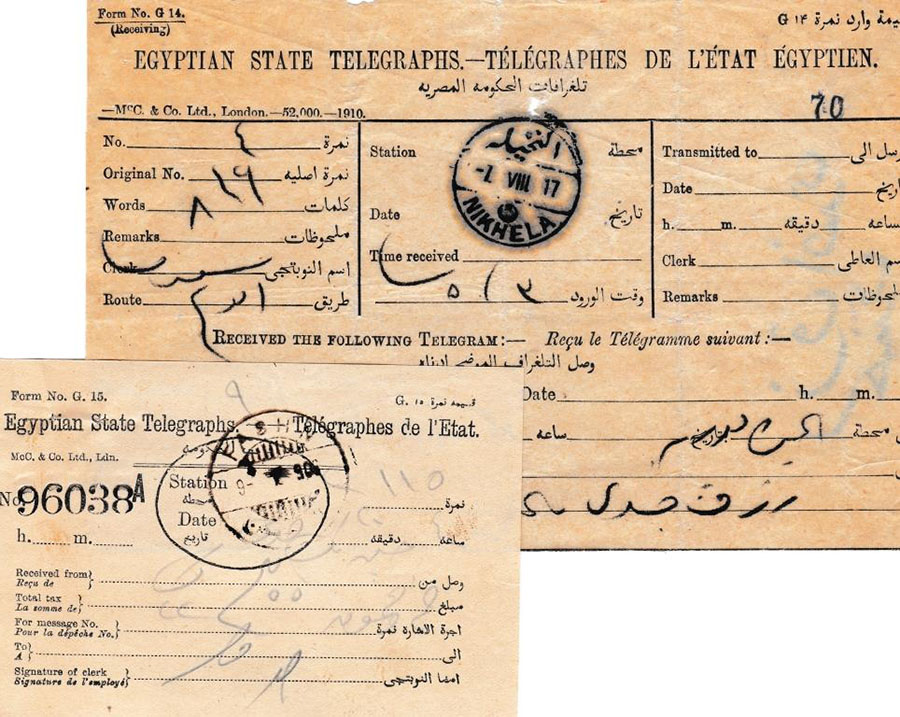 Form No. G 14.
(Receiving)
قسيمة وارد نمرة G ١٤
EGYPTIAN STATE TELEGRAPHS.—TÉLÉGRAPHES DE L'ÉTAT EGYPTIEN.
تلغرافات الحكومه المصريه
—McC. & Co. Ltd., London.—52,000.—1910.
70
No. ٤ نمرة
Original No. ١٩ نمرة اصليه
Words ٨ كلمات
Remarks ملحوظات
Clerk اسم النوبتجى
Route طريق
Station محطة
النخيله
-1 VIII 17
NIKHELA
Date تاريخ
Time received
٣ / ٥ وقت الورود
Transmitted to رسل الى
Date تاريخ
h. m. دقيقه ساعه
Clerk سم العاطى
Remarks ملحوظات
RECEIVED THE FOLLOWING TELEGRAM:— Reçu le Télégramme suivant:—
وصل التلغراف الموضح ادناه
Date h. m.
محطة تاريخ ساعه
Form No. G. 15.
قسيمه نمرة ١٥ G.
Egyptian State Telegraphs.—Télégraphes de l'Etat.
McC. & Co. Ltd., Ldn.
No. 96038A
Station
محطه
Date
تاريخ
١١٥ نمرة
h. m. دقيقه ساعه
Received from وصل من
Reçu de
Total tax مبلغ
La somme de
For message No. اجرة الاشارة نمرة
Pour la dépêche No.
To الى
A
Signature of clerk امضا النوبتجى
Signature de l'employé